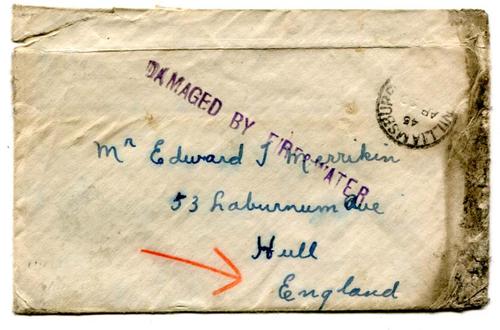 DAMAGED BY FIRE & WATER
WILLIAMSBURG
45
Mr Edward J Merrikin
53 Laburnum Ave
Hull
England